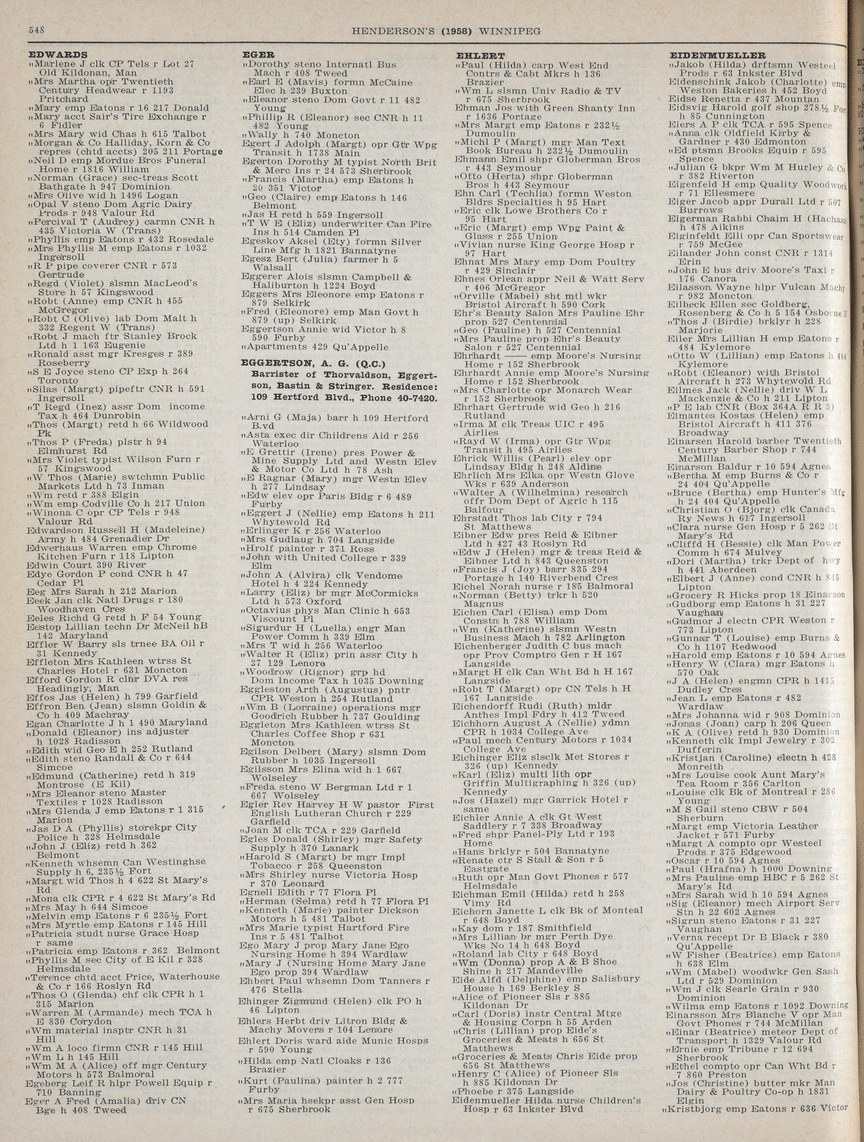 548
HENDERSON'S (1958) WINNIPEG
EDWARDS
„Marlene J clk CP Tels r Lot 27
Old Kildonan, Man
„Mrs Martha opr Twentieth
Century Headwear r 1193
Pritchard
„Mary emp Eatons r 16 217 Donald
„Mary acct Sair's Tire Exchange r
6 Fidler
„Mrs Mary wid Chas h 615 Talbot
„Morgan & Co Halliday, Korn & Co
repres (chtd accts) 205 211 Portage
„Neil D emp Mordue Bros Funeral
Home r 1816 William
„Norman (Grace) sec-treas Scott
Bathgate h 947 Dominion
„Mrs Olive wid h 1496 Logan
„Opal V steno Dom Agric Dairy
Prods r 948 Valour Rd
„Percival T (Audrey) carmn CNR h
435 Victoria W (Trans)
„Phyllis emp Eatons r 432 Rosedale
„Mrs Phyllis M emp Eatons r 1032
Ingersoll
„R P pipe coverer CNR r 573
Gertrude
„Regd (Violet) slsmn MacLeod's
Store h 57 Kingswood
„Robt (Anne) emp CNR h 455
McGregor
„Robt C (Olive) lab Dom Malt h
332 Regent W (Trans)
„Robt J mach ftr Stanley Brock
Ltd h 1 163 Eugenie
„Ronald asst mgr Kresges r 389
Roseberry
„S E Joyce steno CP Exp h 264
Toronto
„Silas (Margt) pipeftr CNR h 591
Ingersoll
„T Regd (Inez) assr Dom income
Tax h 464 Dunrobin
„Thos (Margt) retd h 66 Wildwood
Pk
„Thos P (Freda) plstr h 94
Elmhurst Rd
„Mrs Violet typist Wilson Furn r
57 Kingswood
„W Thos (Marie) swtchmn Public
Markets Ltd h 73 Inman
„Wm retd r 388 Elgin
„Wm emp Codville Co h 217 Union
„Winona C opr CP Tels r 948
Valour Rd
Edwardson Russell H (Madeleine)
Army h 484 Grenadier Dr
Edwerhaus Warren emp Chrome
Kitchen Furn r 118 Lipton
Edwin Court 390 River
Edye Gordon P cond CNR h 47
Cedar Pl
Eeg Mrs Sarah h 212 Marion
Eeek Jan clk Natl Drugs r 180
Woodhaven Cres
Eeles Richd G retd h F 54 Young
Eestop Lillian techn Dr McNeil hB
142 Maryland
Effler W Barry sls trne BA Oil r
31 Kennedy
Effleton Mrs Kathleen wtrss St
Charles Hotel r 631 Moncton
Efford Gordon R clnr DVA res
Headingly, Man
Effos Jas (Helen) h 799 Garfield
Effron Ben (Jean) slsmn Goldin &
Co h 409 Machray
Egan Charlotte J h 1 490 Maryland
„Donald (Eleanor) ins adjuster
h 1028 Radisson
„Edith wid Geo E h 252 Rutland
„Edith steno Randall & Co r 644
Simcoe
„Edmund (Catherine) retd h 319
Montrose (E Kil)
„Mrs Eleanor steno Master
Textiles r 1028 Radisson
„Mrs Glenda J emp Eatons r 1 315
Marion
„Jas D A (Phyllis) storekpr City
Police h 328 Helmsdale
„John J (Eliz) retd h 362
Belmont
„Kenneth whsemn Can Westinghse
Supply h 6, 235½ Fort
„Margt wid Thos h 4 622 St Mary's
Rd
„Mona clk CPR r 4 622 St Mary's Rd
„Mrs May h 644 Simcoe
„Melvin emp Eatons r 6 235½ Fort
„Mrs Myrtle emp Eatons r 145 Hill
„Patricia studt nurse Grace Hosp
r same
„Patricia emp Eatons r 362 Belmont
„Phyllis M sec City of E Kil r 328
Helmsdale
„Terence chtd acct Price, Waterhouse
& Co r 166 Roslyn Rd
„Thos O (Glenda) chf clk CPR h 1
315 Marion
„Warren M (Armande) mech TCA h
E 830 Corydon
„Wm material insptr CNR h 31
Hill
„Wm A loco firmn CNR r 145 Hill
„Wm L h 145 Hill
„Wm M A (Alice) off mgr Century
Motors h 573 Balmoral
Egeberg Leif R hlpr Powell Equip r
710 Banning
Eger A Fred (Amalia) driv CN
Bge h 408 Tweed
EGER
„Dorothy steno Internatl Bus
Mach r 408 Tweed
„Earl E (Mavis) formn McCaine
Elec h 239 Buxton
„Eleanor steno Dom Govt r 11 482
Young
„Phillip R (Eleanor) sec CNR h 11
482 Young
„Wally h 740 Moncton
Egert J Adolph (Margt) opr Gtr Wpg
Transit h 1738 Main
Egerton Dorothy M typist North Brit
& Merc Ins r 24 573 Sherbrook
„Francis (Martha) emp Eatons h
20 351 Victor
„Geo (Claire) emp Eatons h 146
Belmont
„Jas H retd h 559 Ingersoll
„T W E (Eliz) underwriter Can Fire
Ins h 514 Camden Pl
Egeskov Aksel (Ety) formn Silver
Line Mfg h 1821 Bannatyne
Egesz Bert (Julia) farmer h 5
Walsall
Eggerer Alois slsmn Campbell &
Haliburton h 1224 Boyd
Eggers Mrs Eleonore emp Eatons r
879 Selkirk
„Fred (Eleonore) emp Man Govt h
879 (up) Selkirk
Eggertson Annie wid Victor h 8
590 Furby
„Apartments 429 Qu'Appelle
EGGERTSON, A. G. (Q.C.)
Barrister of Thorvaldson, Eggert-
son, Bastin & Stringer. Residence:
109 Hertford Blvd., Phone 40-7420.
„Arni G (Maja) barr h 109 Hertford
B.vd
„Asta exec dir Childrens Aid r 256
Waterloo
„E Grettir (Irene) pres Power &
Mine Supply Ltd and Westn Elev
& Motor Co Ltd h 78 Ash
„E Ragnar (Mary) mgr Westn Elev
h 277 Lindsay
„Edw elev opr Paris Bldg r 6 489
Furby
„Eggert J (Nellie) emp Eatons h 211
Whytewold Rd
„Erlinger K r 256 Waterloo
„Mrs Gudlaug h 704 Langside
„Hrolf painter r 371 Ross
„John with United College r 339
Elm
„John A (Alvira) clk Vendome
Hotel h 4 224 Kennedy
„Larry (Eliz) br mgr McCormicks
Ltd h 573 Oxford
„Octavius phys Man Clinic h 653
Viscount Pl
„Sigurdur H (Luella) engr Man
Power Comm h 339 Elm
„Mrs T wid h 256 Waterloo
„Walter R (Eliz) prin assr City h
27 129 Lenore
„Woodrow (Rignor) grp hd
Dom Income Tax h 1035 Downing
Eggleston Arth (Augustus) pntr
CPR Weston h 254 Rutland
„Wm B (Lorraine) operations mgr
Goodrich Rubber h 737 Goulding
Eggleton Mrs Kathleen wtrss St
Charles Coffee Shop r 631
Moncton
Egilson Delbert (Mary) slsmn Dom
Rubber h 1035 Ingersoll
Egilsson Mrs Elina wid h 1 667
Wolseley
„Freda steno W Bergman Ltd r 1
667 Wolseley
Egler Rev Harvey H W pastor First
English Lutheran Church r 229
Garfield
„Joan M clk TCA r 229 Garfield
Egles Donald (Shirley) mgr Safety
Supply h 370 Lanark
„Harold S (Margt) br mgr Impl
Tobacco r 258 Queenston
„Mrs Shirley nurse Victoria Hosp
r 370 Leonard
Egnell Edith r 77 Flora Pl
„Herman (Selma) retd h 77 Flora Pl
„Kenneth (Marie) painter Dickson
Motors h 5 481 Talbot
„Mrs Marie typist Hartford Fire
Ins r 5 481 Talbot
Ego Mary J prop Mary Jane Ego
Nursing Home h 394 Wardlaw
„Mary J (Nursing Home Mary Jane
Ego prop 394 Wardlaw
Ehbert Paul whsemn Dom Tanners r
476 Stella
Ehinger Zigmund (Helen) clk PO h
46 Lipton
Ehlers Herbt driv Litron Bldg &
Machy Movers r 104 Lenore
Ehlert Doris ward aide Munic Hosps
r 590 Young
„Hilda emp Natl Cloaks r 136
Brazier
„Kurt (Paulina) painter h 2 777
Furby
„Mrs Maria hsekpr asst Gen Hosp
r 675 Sherbrook
EHLERT
„Paul (Hilda) carp West End
Contrs & Cabt Mkrs h 136
Brazier
„Wm L slsmn Univ Radio & TV
r 675 Sherbrook
Ehman Jos with Green Shanty Inn
r 1636 Portage
„Mrs Margt emp Eatons r 232½
Dumoulin
„Michl P (Margt) mgr Man Text
Book Bureau h 232½ Dumoulin
Ehmann Emil shpr Globerman Bros
r 443 Seymour
„Otto (Herta) shpr Globerman
Bros h 443 Seymour
Ehn Carl (Techla) formn Westen
Bldrs Specialties h 95 Hart
„Eric clk Lowe Brothers Co r
95 Hart
„Eric (Margt) emp Wpg Paint &
Glass r 255 Union W
„Vivian nurse King George Hosp r
97 Hart
Ehnat Mrs Mary emp Dom Poultry
r 429 Sinclair
Ehnes Orlean appr Neil & Watt Serv
r 406 McGregor
„Orville (Mabel) sht mtl wkr
Bristol Aircraft h 590 Cork
Ehr's Beauty Salon Mrs Pauline Ehr
prop 527 Centennial
„Geo (Pauline) h 527 Centennial
„Mrs Pauline prop Ehr's Beauty
Salon r 527 Centennial
Ehrhardt —— emp Moore's Nursing
Home r 152 Sherbrook
Ehrhardt Annie emp Moore's Nursing
Home r 152 Sherbrook
„Mrs Charlotte opr Monarch Wear
r 152 Sherbrook
Ehrhart Gertrude wid Geo h 216
Rutland
„Irma M clk Treas UIC r 495
Airlies
„Rayd W (Irma) opr Gtr Wpg
Transit h 495 Airlies
Ehrick Willis (Pearl) elev opr
Lindsay Bldg h 248 Aldine
Ehrlich Mrs Elka opr Westn Glove
Wks r 639 Anderson
„Walter A (Wilhelmina) research
offr Dom Dept of Agric h 115
Balfour
Ehrstadt Thos lab City r 794
St Matthews
Eibner Edw pres Reid & Eibner
Ltd h 427 43 Roslyn Rd
„Edw J (Helen) mgr & treas Reid &
Eibner Ltd h 843 Queenston
„Francis J (Joy) barr 835 294
Portage h 140 Riverbend Cres
Eichel Norah nurse r 185 Balmoral
„Norman (Betty) trkr h 520
Magnus
Eichen Carl (Elisa) emp Dom
Constn h 788 William
„Wm (Katherine) slsmn Westn
Business Mach h 782 Arlington
Eichenberger Judith C bus mach
opr Prov Comptro Gen r H 167
Langside
„Margt H clk Can Wht Bd h H 167
Langside
„Robt T (Margt) opr CN Tels h H
167 Langside
Eichendorff Rudi (Ruth) mldr
Anthes Impl Fdry h 412 Tweed
Eichhorn August A (Nellie) ydmn
CPR h 1034 College Ave
„Paul mech Century Motors r 1034
College Ave
Eichinger Eliz slsclk Met Stores r
326 (up) Kennedy
„Karl (Eliz) multi lith opr
Griffin Multigraphing h 326 (up)
Kennedy
„Jos (Hazel) mgr Garrick Hotel r
same
Eichler Annie A clk Gt West
Saddlery r 7 338 Broadway
„Fred shpr Panel-Ply Ltd r 193
Home
„Hans brklyr r 504 Bannatyne
„Renate ctr S Stall & Son r 5
Eastgate
„Ruth opr Man Govt Phones r 577
Helmsdale
Eichman Emil (Hilda) retd h 258
Vimy Rd
Eichorn Janette L clk Bk of Monteal
r 648 Boyd
„Kay dom r 187 Smithfield
„Mrs Lillian br mgr Perth Dye
Wks No 14 h 648 Boyd
„Roland lab City r 648 Boyd
„Wm (Donna) prop A & B Shoe
Shine h 217 Mandeville
Eide Alfd (Delphine) emp Salisbury
House h 169 Berkley S
„Alice of Pioneer Sls r 885
Kildonan Dr
„Carl (Doris) instr Central Mtge
& Housing Corph h 55 Arden
„Chris (Lillian) prop Eide's
Groceries & Meats h 656 St
Matthews
„Groceries & Meats Chris Eide prop
656 St Matthews
„Henry C (Alice) of Pioneer Sls
h 885 Kildonan Dr
„Phoebe r 375 Langside
Eidenmueller Hilda nurse Children's
Hosp r 63 Inkster Blvd
EIDENMUELLER
„Jakob (Hilda) drftsmn Westeel
Prods r 63 Inkster Blvd
Eidenschink Jakob (Charlotte) emp
Weston Bakeries h 452 Boyd
Eidse Renetta r 437 Mountain
Eidsvig Harold golf shop 278½ For
h 85 Cunnington
Eiers A P clk TCA r 595 Spence
„Anna clk Oldfield Kirby &
Gardner r 430 Edmonton
„Ed ptsmn Brooks Equip r 595
Spence
„Julian G bkpr Wm M Hurley & Co
r 382 Riverton
Eigenfeld H emp Quality Woodwork
r 71 Ellesmere
Eiger Jacob appr Durall Ltd r 507
Burrows
Eigerman Rabbi Chaim H (Hachasa
h 478 Aikins
Eiginfeldt Elli opr Can Sportswear
r 759 McGee
Eilander John constr CNR r 1314
Erin
„John E bus driv Moore's Taxi r
176 Canora
Eilasson Wayne hlpr Vulcan Machy
r 982 Moncton
Eilbeck Ellen sec Goldberg,
Rosenberg & Co h 5 154 Osborne S
„Thos J (Birdie) brklyr h 228
Marjorie
Eiler Mrs Lillian H emp Eatons r
484 Kylemore
„Otto W (Lillian) emp Eatons h 484
Kylemore
„Robt (Eleanor) with Bristol
Aircraft h 273 Whytewold Rd
Eilmes Jack (Nellie) driv W L
Mackenzie & Co h 211 Lipton
„P E lab CNR (Box 364A R R 3)
Eimantos Kostas (Helen) emp
Bristol Aircraft h 411 376
Broadway
Einarsen Harold barber Twentieth
Century Barber Shop r 744
McMillan
Einarson Baldur r 10 594 Agnes
„Bertha M emp Burns & Co r
24 404 Qu'Appelle
„Bruce (Bertha) emp Hunter's Mfg
h 24 404 Qu'Appelle
„Christian O (Bjorg) clk Canada
Ry News h 617 Ingersoll
„Clara nurse Gen Hosp r 5 262 St
Mary's Rd
„Cliffd H (Bessie) clk Man Power
Comm h 674 Mulvey
„Dori (Martha) trkr Dept of hwy
h 441 Aberdeen
„Elbert J (Anne) cond CNR h 845
Lipton
„Grocery R Hicks prop 18 Einarson
„Gudborg emp Eatons h 31 227
Vaughan
„Gudmor J electn CPR Weston r
773 Lipton
„Gunnar T (Louise) emp Burns &
Co h 1107 Redwood
„Harold emp Eatons r 10 594 Agnes
„Henry W (Clara) mgr Eatons h
570 Oak
„J A (Helen) engmn CPR h 1415
Dudley Cres
„Jean L emp Eatons r 482
Wardlaw
„Mrs Johanna wid r 908 Dominion
„Jonas (Joan) carp h 206 Queen
„K A (Olive) retd h 930 Dominion
„Kenneth clk Impl Jewelry r 302
Dufferin
„Kristjan (Caroline) electn h 428
Monreith
„Mrs Louise cook Aunt Mary's
Tea Room r 356 Carlton
„Louise clk Bk of Montreal r 286
Young
„M S Gail steno CBW r 504
Sherburn
„Margt emp Victoria Leather
Jacket r 571 Furby
„Margt A compto opr Westeel
Prods r 375 Edgewood
„Oscar r 10 594 Agnes
„Paul (Hrafna) h 1000 Downing
„Mrs Pauline emp HBC r 5 262 St
Mary's Rd
„Mrs Sarah wid h 10 594 Agnes
„Sig (Eleanor) mech Airport Serv
Stn h 22 602 Agnes
„Sigrun steno Eatons r 31 227
Vaughan
„Verna recept Dr B Black r 380
Qu'Appelle
„W Fisher (Beatrice) emp Eatons
h 638 Elm
„Wm (Mabel) woodwkr Gen Sash
Ltd r 529 Dominion
„Wm J clk Searle Grain r 930
Dominion
„Wilma emp Eatons r 1092 Downing
Einarsson Mrs Blanche V opr Man
Govt Phones r 744 McMillan
„Einar (Beatrice) meteor Dept of
Transport h 1329 Valour Rd
„Ernie emp Tribune r 12 694
Sherbrook
„Ethel compto opr Can Wht Bd r
7 860 Preston
„Jos (Christine) butter mkr Man
Dairy & Poultry Co-op h 1831
Elgin
„Kristbjorg emp Eatons r 636 Victor